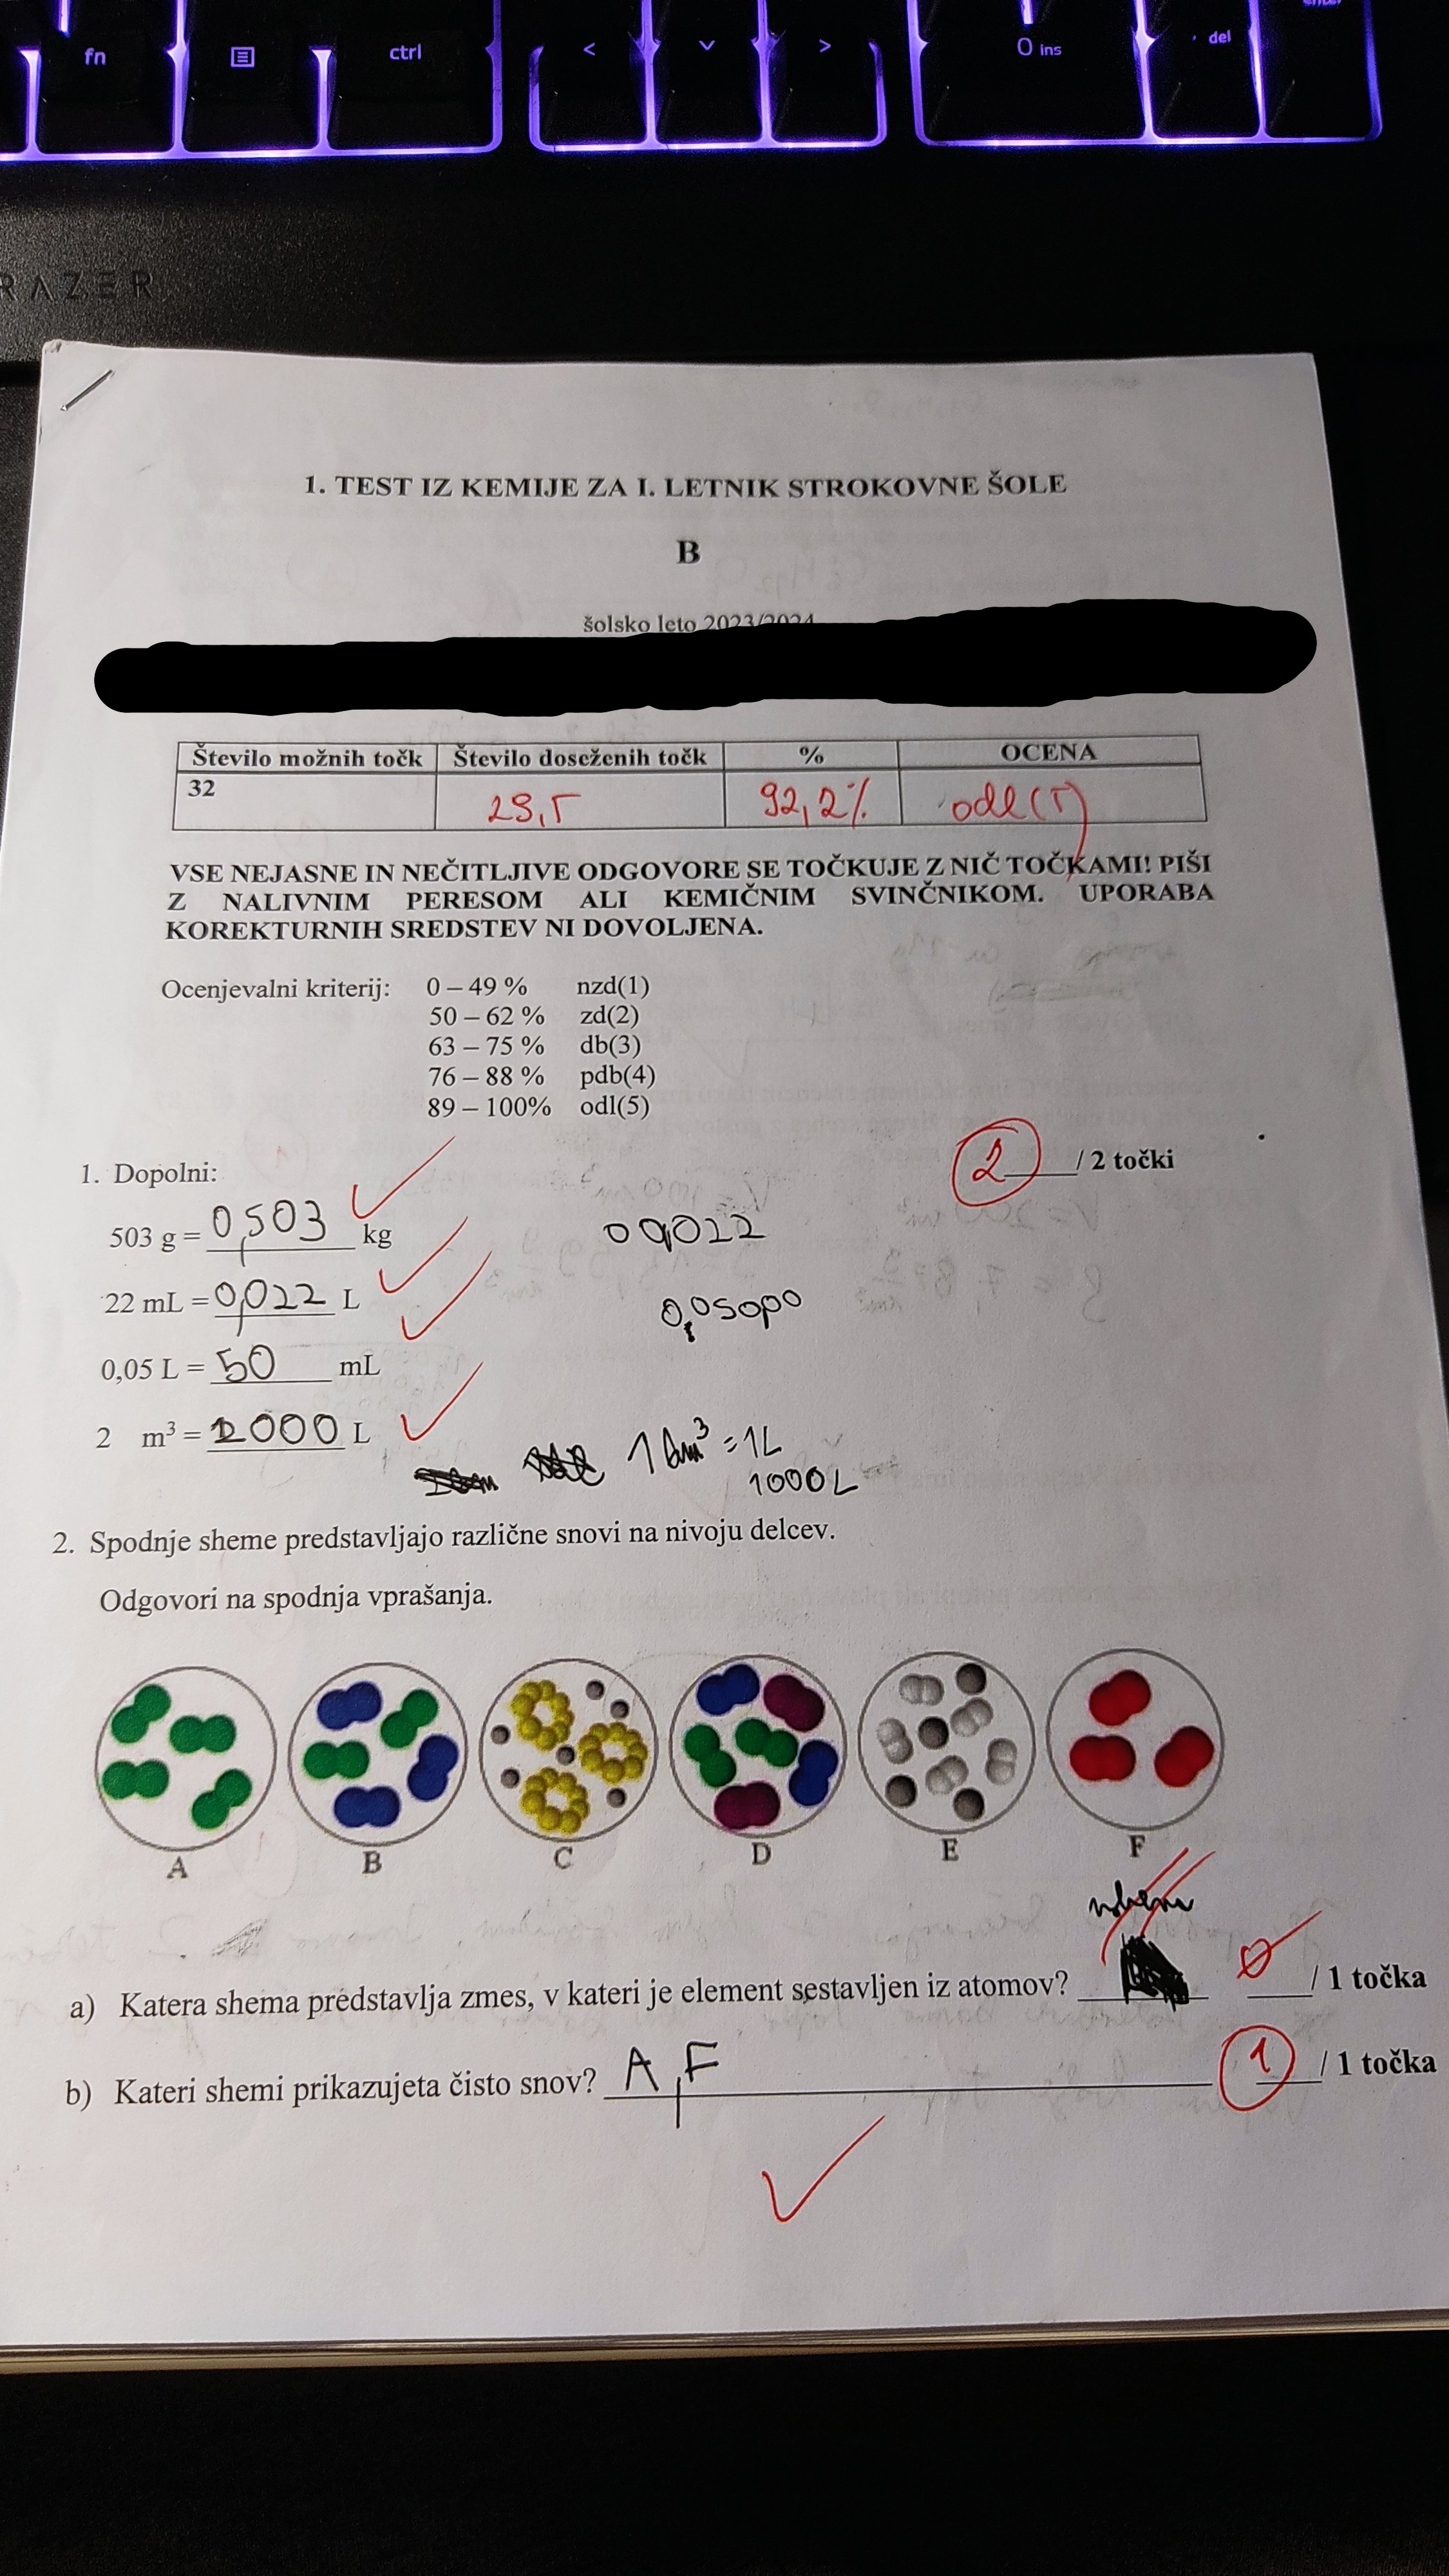 fn
ctrl
<
>
0 ins
. del
RAZER
1. TEST IZ KEMIJE ZA I. LETNIK STROKOVNE ŠOLE
B
šolsko leto 2023/2024
Število možnih točk Število doseženih točk % OCENA
32 29,5 92,2% odl(5)
VSE NEJASNE IN NEČITLJIVE ODGOVORE SE TOČKUJE Z NIČ TOČKAMI! PIŠI
Z NALIVNIM PERESOM ALI KEMIČNIM SVINČNIKOM. UPORABA
KOREKTURNIH SREDSTEV NI DOVOLJENA.
Ocenjevalni kriterij: 0 – 49 % nzd(1)
50 – 62 % zd(2)
63 – 75 % db(3)
76 – 88 % pdb(4)
89 – 100% odl(5)
1. Dopolni: 2 / 2 točki
503 g = 0,503 kg
22 mL = 0,022 L
0,05 L = 50 mL
2 m³ = 2000 L
1 dm³ = 1L
1000L
2. Spodnje sheme predstavljajo različne snovi na nivoju delcev.
Odgovori na spodnja vprašanja.
A B C D E F
a) Katera shema predstavlja zmes, v kateri je element sestavljen iz atomov? 0 / 1 točka
b) Kateri shemi prikazujeta čisto snov? A, F 1 / 1 točka